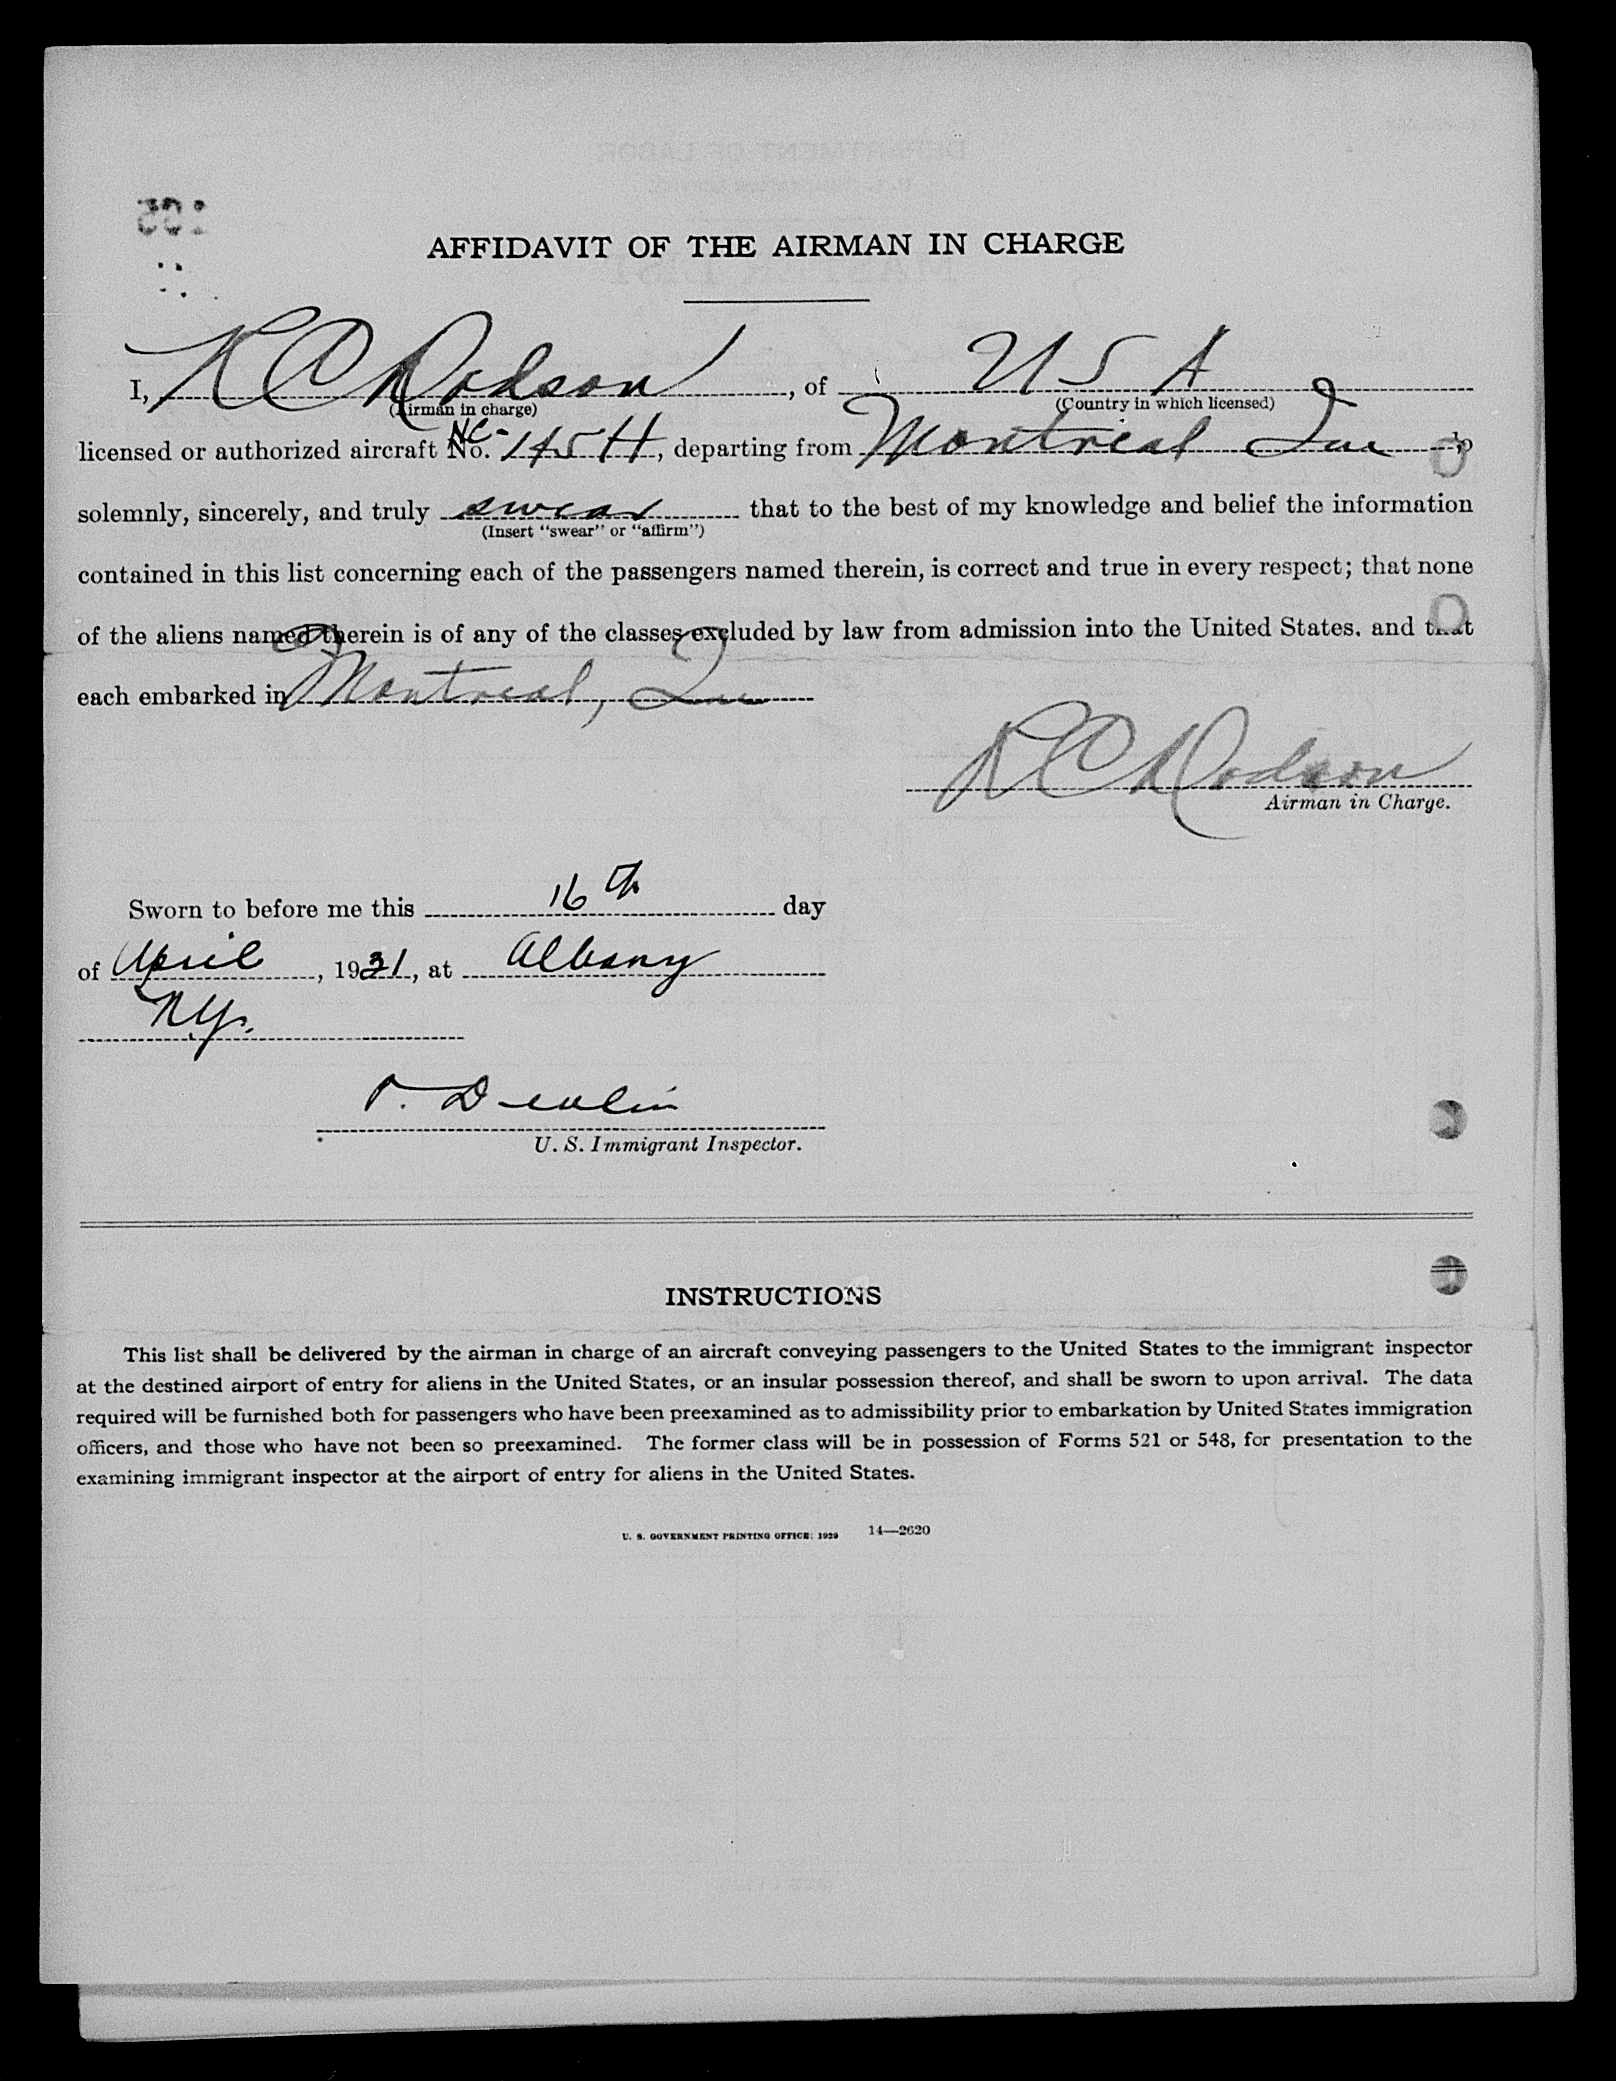 AFFIDAVIT OF THE AIRMAN IN CHARGE
I, R C Dodson, of U S A
(Airman in charge) (Country in which licensed)
licensed or authorized aircraft No. NC-145H, departing from Montreal Que, do
solemnly, sincerely, and truly swear that to the best of my knowledge and belief the information
(Insert "swear" or "affirm")
contained in this list concerning each of the passengers named therein, is correct and true in every respect; that none
of the aliens named therein is of any of the classes excluded by law from admission into the United States, and that
each embarked in Montreal, Que
R C Dodson
Airman in Charge.
Sworn to before me this 16th day
of April, 1931, at Albany
N.Y.
Devlin
U. S. Immigrant Inspector.
INSTRUCTIONS
This list shall be delivered by the airman in charge of an aircraft conveying passengers to the United States to the immigrant inspector
at the destined airport of entry for aliens in the United States, or an insular possession thereof, and shall be sworn to upon arrival. The data
required will be furnished both for passengers who have been preexamined as to admissibility prior to embarkation by United States immigration
officers, and those who have not been so preexamined. The former class will be in possession of Forms 521 or 548, for presentation to the
examining immigrant inspector at the airport of entry for aliens in the United States.
U. S. GOVERNMENT PRINTING OFFICE: 1929 14—2620